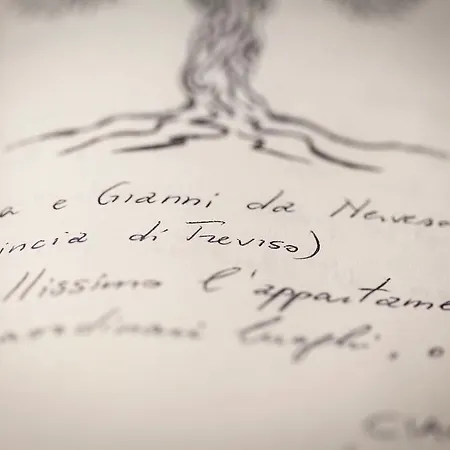 a e Gianni da Nervesa
incia di Treviso)
llissimo l'appartame
aordinari luoghi, o
CIA